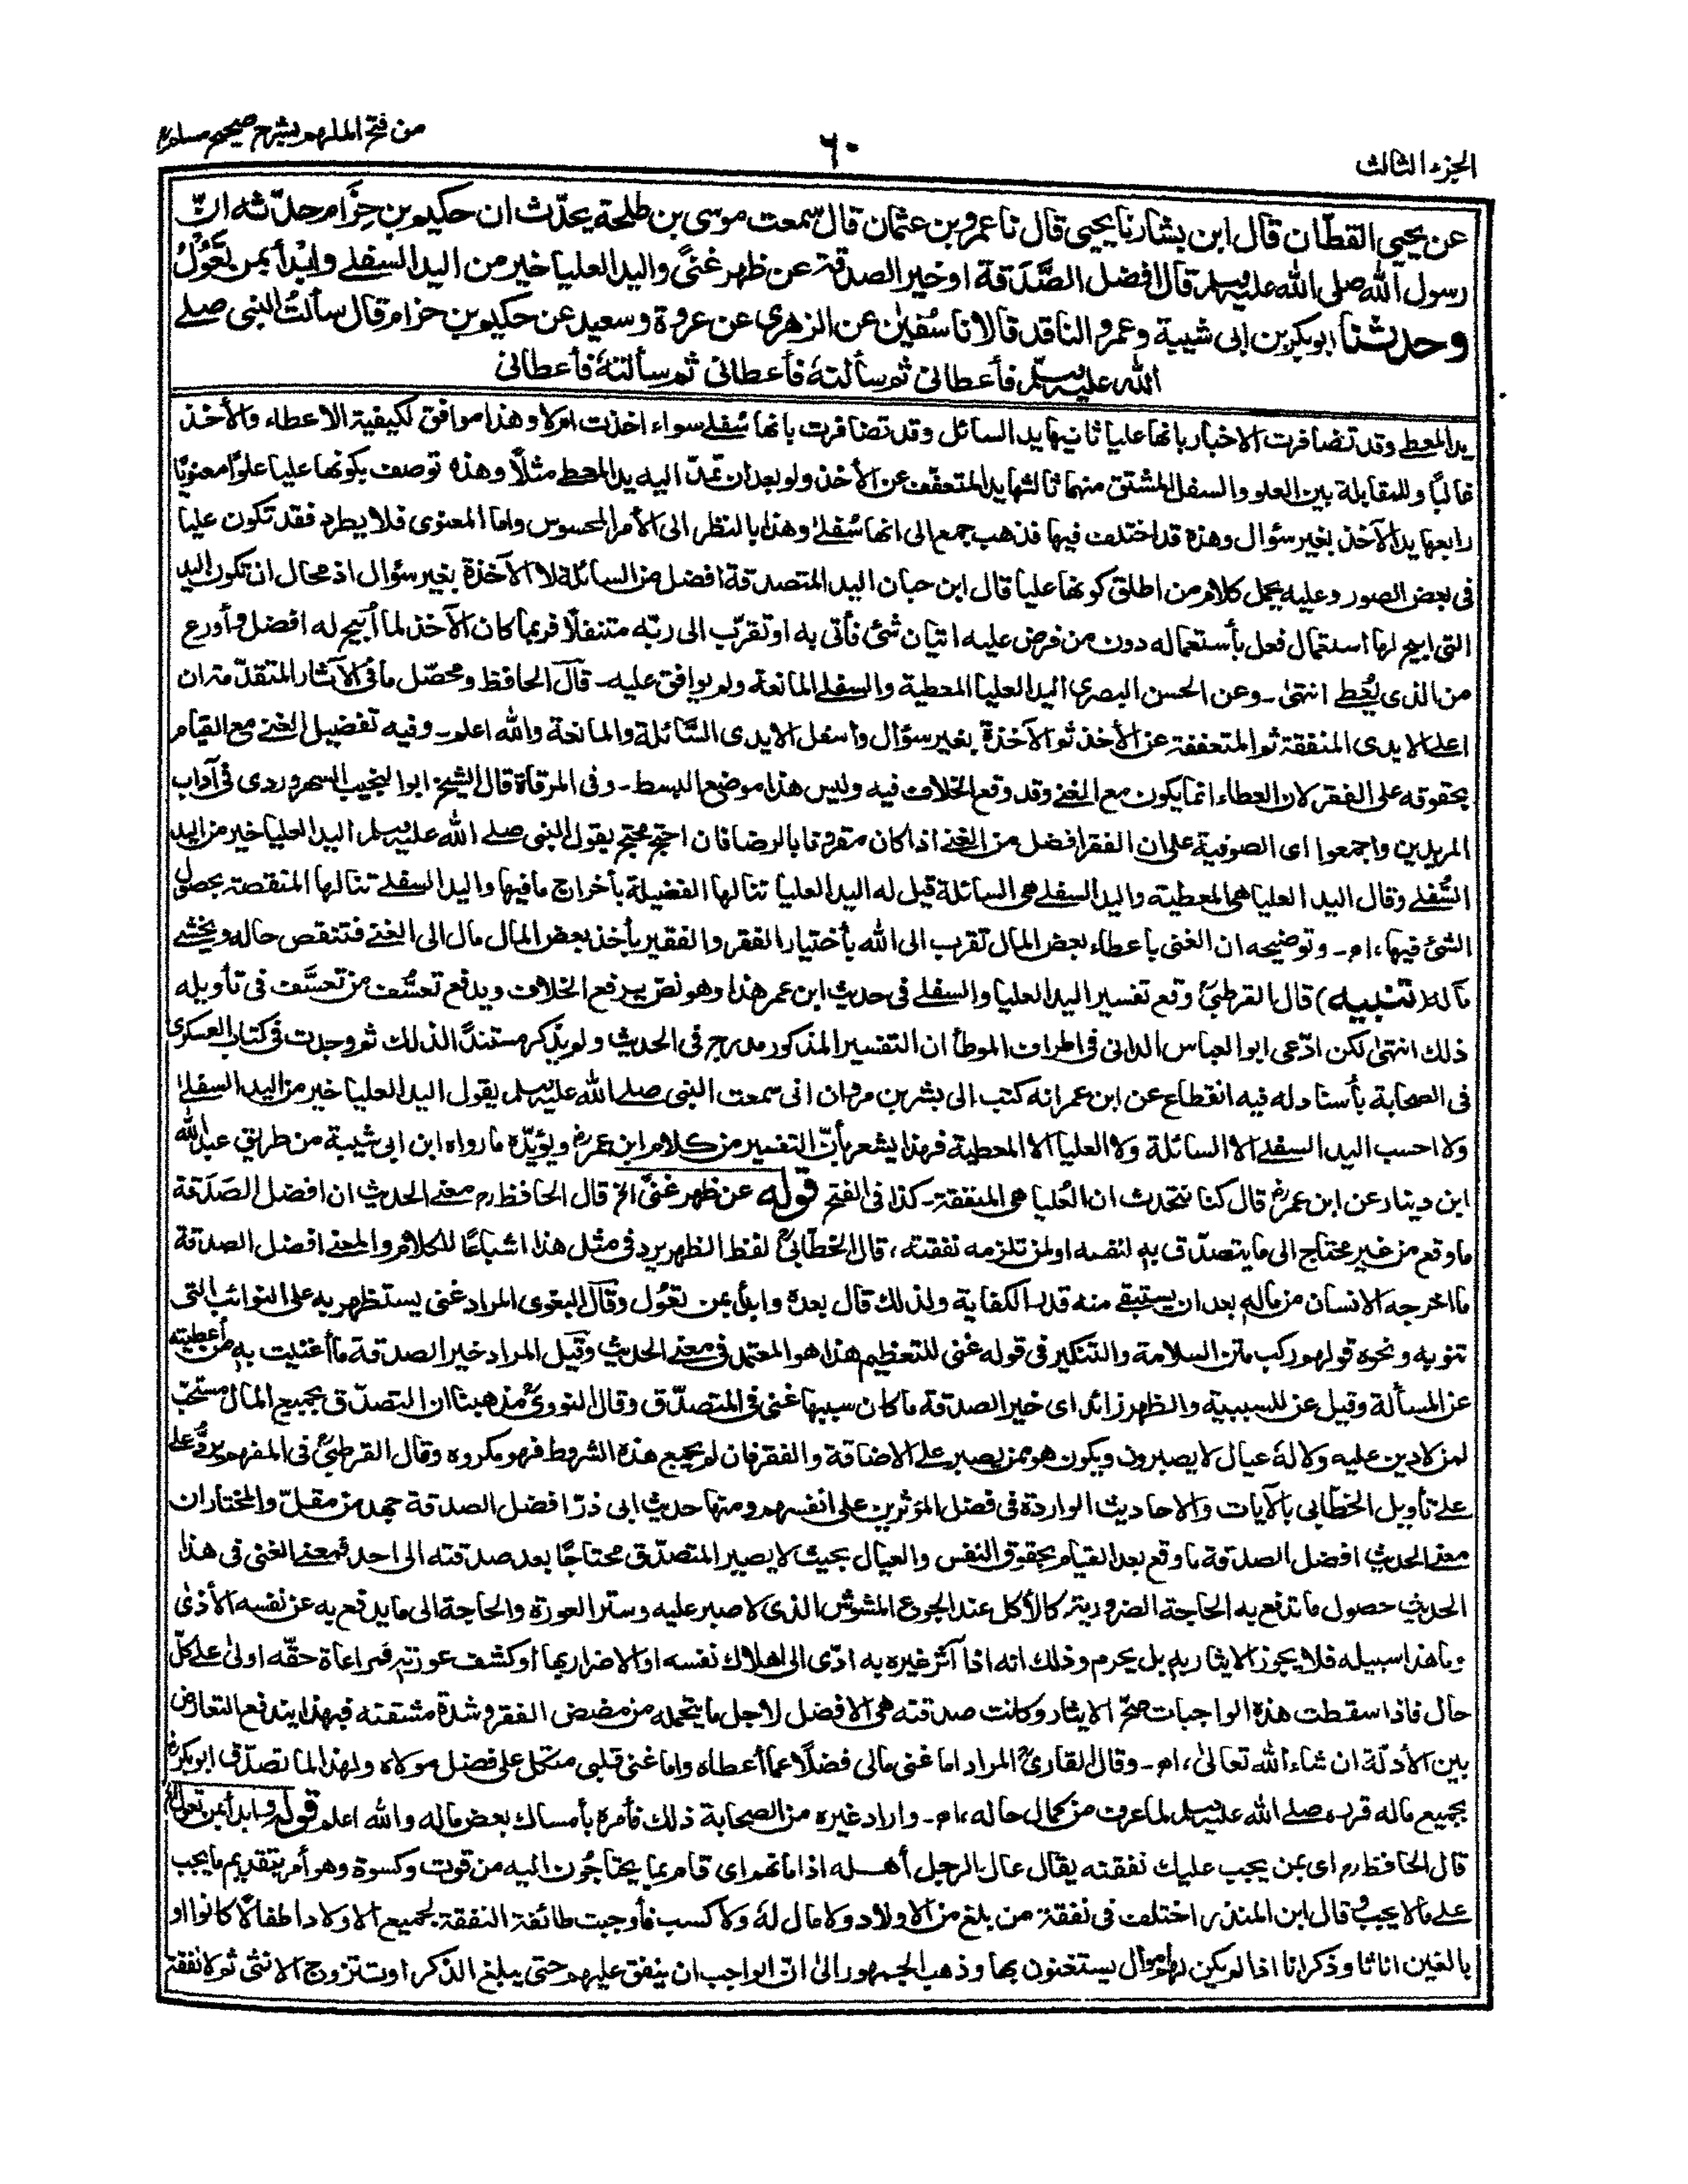 الجزء الثالث
٦٠
من فتح الملهم بشرح صحيح مسلم
عن يحيى القطان قال ابن بشار نا يحيى قال نا عمرو بن عثمان قال سمعت موسى بن طلحة يحدّث ان حكيم بن حِزَام حدّثه انّ
رسول الله صلى الله عليه وسلم قال افضل الصَّدَقة او خير الصدقة عن ظهر غنًى واليد العليا خير من اليد السفلے وابْدأ بمن تَعُوْلُ
وحدثنا ابوبكر بن ابى شيبة وعمرو الناقد قالا نا سُفيٰن عن الزهرى عن عروة وسعيد عن حكيم بن حزام قال سألتُ النبى صلے
الله عليه وسلم فأعطانى ثم سألتهٗ فأعطانى ثم سألتهٗ فأعطانى
يد المعطے وقد تضافرت الاخبار بانها عليا ثانيها يد السائل وقد تضافرت بانها سُفلے سواء اخذت ام لا وهذا موافق لكيفية الاعطاء والأخذ
غالبًا وللمقابلة بين العلو والسفل المشتق منهما ثالثها يد المتعفّف عن الأخذ ولو بعد ان تمدّ اليه يد المعطے مثلًا وهذه توصف بكونها عليا علوًا معنويًا
رابعها يد الآخذ بغير سؤال وهذه قد اختلف فيها فذهب جمع الى انها سُفلےٰ وهذا بالنظر الى الأمر المحسوس واما المعنوى فلا يطرد فقد تكون عليا
فى بعض الصور وعليه يحمل كلام من اطلق كونها عليا قال ابن حبان اليد المتصدقة افضل من السائلة لا الآخذة بغير سؤال اذ محال ان تكون اليد
التى ابيح لها استعمال فعل بأستعماله دون من فرض عليه اتيان شئ فأتى به او تقرّب الى ربّه متنفلًا فربما كان الآخذ لما أُبيح له افضل وأورع
من الذى يُعْطِے انتهىٰ ـ وعن الحسن البصرى اليد العليا المعطية والسفلے المانعة ولم يوافق عليه ـ قال الحافظ ومحصّل ما فى الآثار المتقدّمة ان
اعلے الايدى المنفقة ثم المتعففة عن الأخذ ثم الآخذة بغير سؤال واسفل الايدى السَّائلة والمانعة والله اعلم ـ وفيه تفضيل الغنے مع القيام
بحقوقه على الفقر لان العطاء انما يكون مع الغنے وقد وقع الخلاف فيه وليس هذا موضع البسط ـ وفى المرقاة قال الشيخ ابو النجيب السهروردى فى آداب
المريدين واجمعوا اى الصوفية على ان الفقر افضل من الغنے اذا كان مقرونا بالرضا فان احتج محتج بقول النبى صلے الله عليه وسلم اليد العليا خير من اليد
السُّفلے وقال اليد العليا هى المعطية واليد السفلے هى السائلة قيل له اليد العليا تنالها الفضيلة بأخراج ما فيها واليد السفلے تنالها المنقصة بحصول
الشئ فيها، اه ـ وتوضيحه ان الغنى باعطاء بعض المال تقرب الى الله بأختيار الفقر والفقير بأخذ بعض المال مال الى الغنے فتنقص حاله ويخشے
مآله (تنبيه) قال القرطبىؒ وقع تفسير اليد العليا والسفلے فى حديث ابن عمر هذا وهو نص يرفع الخلاف ويدفع تعسُّف من تعسَّف فى تأويله
ذلك انتهىٰ لكن ادّعى ابو العباس الدانى فى اطراف الموطأ ان التفسير المذكور مدرج فى الحديث ولم يذكر مستندًا لذلك ثم وجدت فى كتاب العسكرى
فى الصحابة بأسناد له فيه انقطاع عن ابن عمر انه كتب الى بشر بن مروان انى سمعت النبى صلے الله عليه وسلم يقول اليد العليا خير من اليد السفلےٰ
ولا احسب اليد السفلے الا السائلة ولا العليا الا المعطية فهذا يشعر بأنّ التفسير من كلام ابن عمرؓ ويؤيّده ما رواه ابن ابى شيبة من طريق عبد الله
ابن دينار عن ابن عمرؓ قال كنا نتحدث ان العُليا هى المنفقة ـ كذا فى الفتح قوله عن ظهر غنًى الخ قال الحافظ رح معنے الحديث ان افضل الصَدَقة
ما وقع من غير محتاج الى ما يتصدّق به لنفسه او لمن تلزمه نفقته، قال الخطّابىؒ لفظ الظهر يرد فى مثل هذا اشباعًا للكلام والمعنے افضل الصدقة
ما اخرجه الانسان من ماله بعد ان يستبقے منه قدر الكفاية ولذلك قال بعده وابدأ بمن تَعُوْل وقال البغوى المراد غنى يستظهر به على النوائب التى
تنوبه ونحوه قولهم ركب متن السلامة والتنكير فى قوله غنى للتعظيم هذا هو المعتمد فى معنے الحديث وقيل المراد خير الصدقة ما أغنيت به من أعطيته
عن المسألة وقيل عن للسببية والظهر زائد اى خير الصدقة ما كان سببها غنى فى المتصدّق وقال النووىؒ مذهبنا ان التصدّق بجميع المال مستحبّ
لمن لا دين عليه ولا لهٗ عيال لا يصبرون ويكون هو ممن يصبر على الاضاقة والفقر فان لم يجمع هذه الشروط فهو مكروه وقال القرطبىؒ فى المفهم يردُّ على
علے تأويل الخطّابى بالآيات والاحاديث الواردة فى فضل المؤثرين على انفسهم ومنها حديث ابى ذرّ افضل الصدقة جهد من مقلّ والمختار ان
معنے الحديث افضل الصدقة ما وقع بعد القيام بحقوق النفس والعيال بحيث لا يصير المتصدّق محتاجًا بعد صدقته الى احد فمعنے الغنى فى هذا
الحديث حصول ما تدفع به الحاجة الضرورية كالأكل عند الجوع المشوش الذى لا صبر عليه وستر العورة والحاجة الى ما يدفع به عن نفسه الأذىٰ
وما هذا سبيله فلا يجوز الايثار به بل يحرم وذلك انه اذا آثر غيره به ادّى الى اهلاك نفسه او الاضرار بها او كشف عورته فمراعاة حقّه اولىٰ علے كلّ
حال فاذا سقطت هذه الواجبات صحّ الايثار وكانت صدقته هى الافضل لاجل ما يتحمله من مضض الفقر وشدة مشقته فبهذا يندفع التعارض
بين الأدلّة ان شاء الله تعالىٰ، اه ـ وقال القارىؒ المراد اما غنى مالى فضلًا عما أعطاه واما غنى قلبى متكل على فضل مولاه ولهذا لما تصدّق ابوبكرؓ
بجميع ماله قرره صلے الله عليه وسلم لما عرف من كمال حاله، اه ـ واراد غيره من الصحابة ذلك فأمره بأمساك بعض ماله والله اعلم قوله وابدأ بمن تعول الخ
قال الحافظ رح اى بمن يجب عليك نفقته يقال عال الرجل أهله اذا ما نهم اى قام بما يحتاجُون اليه من قوت وكسوة وهو أمر بتقديم ما يجب
على ما لا يجب وقال ابن المنذر اختلف فى نفقة من بلغ من الاولاد ولا مال لهٗ ولا كسب فأوجبت طائفة النفقة لجميع الاولاد اطفالًا كانوا او
بالغين اناثا وذكرانا اذا لم يكن لهم اموال يستغنون بها وذهب الجمهور الىٰ انّ الواجب ان ينفق عليهم حتى يبلغ الذكر او تتزوج الانثى ثم لا نفقة